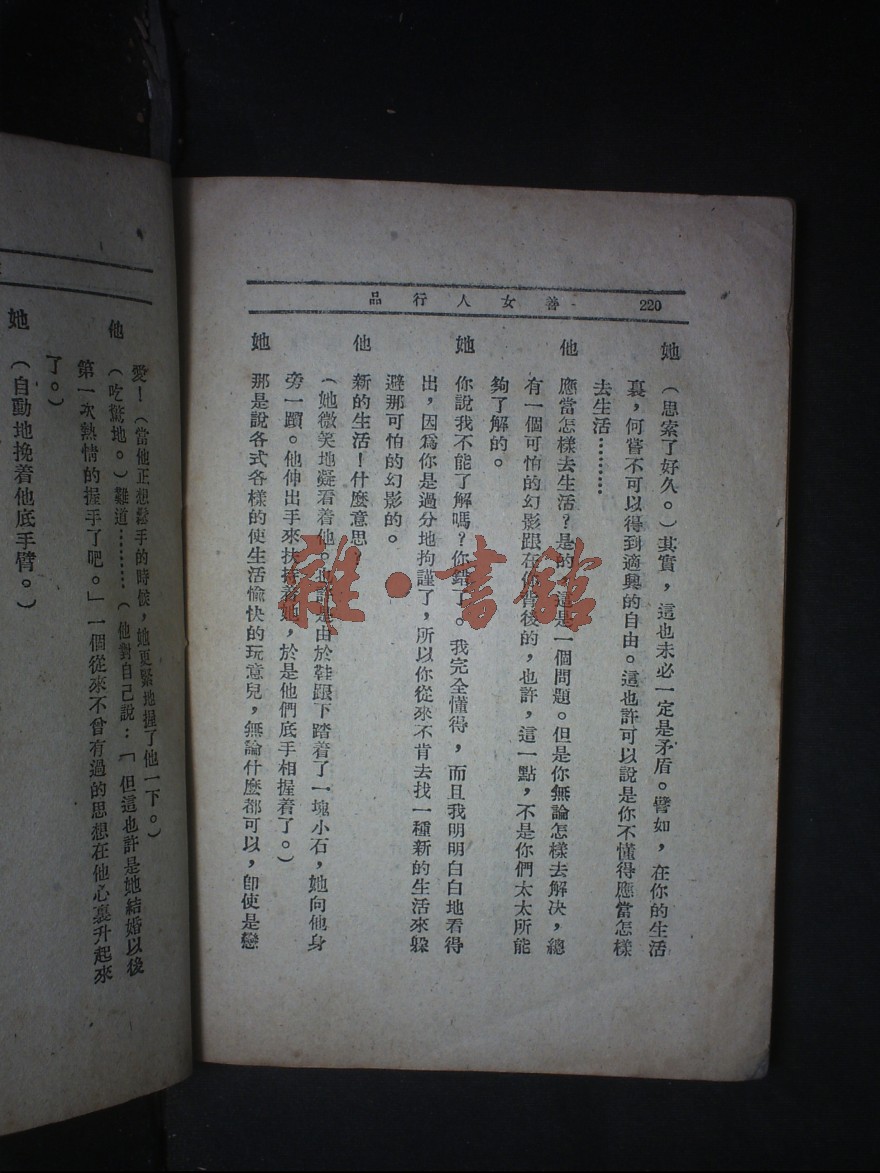 善女人行品
220
她 (思索了好久。)其實，這也未必一定是矛盾。譬如，在你的生活
裏，何嘗不可以得到適輿的自由。這也許可以說是你不懂得應當怎樣
去生活………
他 應當怎樣去生活？是的，這是一個問題。但是你無論怎樣去解决，總
有一個可怕的幻影跟在你背後的，也許，這一點，不是你們太太所能
夠了解的。
她 你說我不能了解嗎？你錯了。我完全懂得，而且我明明白白地看得
出，因爲你是過分地拘謹了，所以你從來不肯去找一種新的生活來躲
避那可怕的幻影的。
他 新的生活！什麽意思？
(她微笑地凝看着他。也許是由於鞋跟下踏着了一塊小石，她向他身
旁一躓。他伸出手來扶持着她，於是他們底手相握着了。)
她 那是說各式各樣的使生活愉快的玩意兒，無論什麽都可以，卽使是戀
愛！(當他正想鬆手的時候，她更緊地握了他一下。)
他 (吃驚地。)難道………(他對自己說：「但這也許是她結婚以後
第一次熱情的握手了吧。」一個從來不曾有過的思想在他心裏升起來
了。)
她 (自動地挽着他底手臂。)
雜·書館